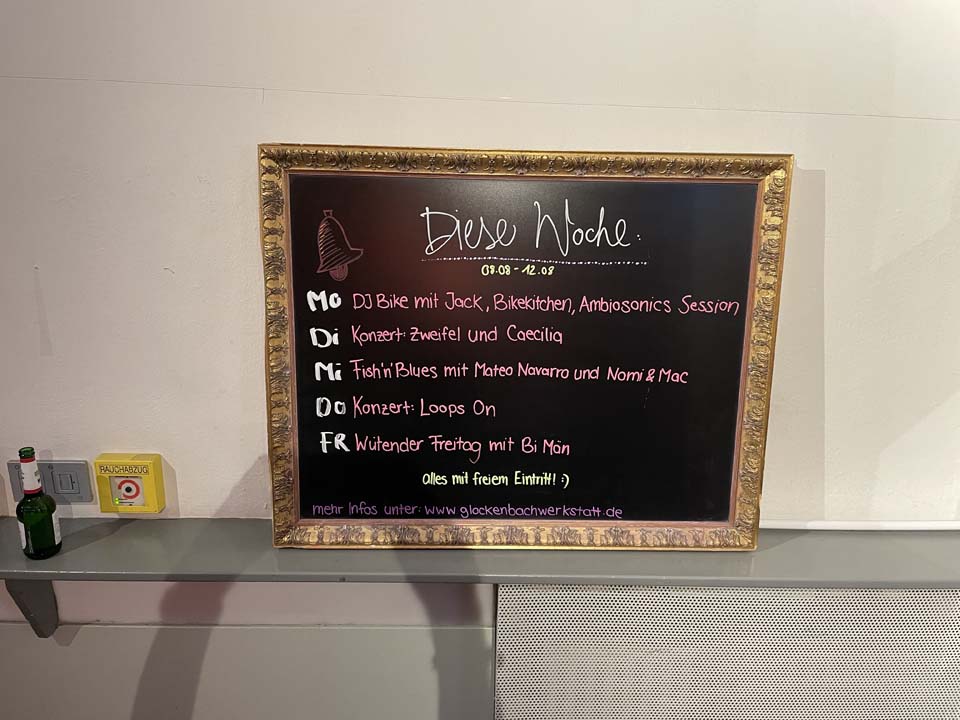 Diese Woche:
08.08 - 12.08
Mo DJ Bike mit Jack, Bikekitchen, Ambiosonics Session
Di Konzert: Zweifel und Caecilia
Mi Fish'n'Blues mit Mateo Navarro und Nomi & Mac
Do Konzert: Loops On
FR Wütender Freitag mit Bi Män
alles mit freiem Eintritt! :)
mehr Infos unter: www.glockenbachwerkstatt.de
RAUCHABZUG